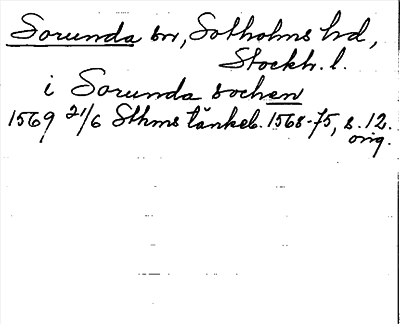 Sorunda sn, Sotholms hd,
Stockh. l.
i Sorunda sochen
1569 21/6 Sthms tänkeb. 1568-75, s. 12.
orig.